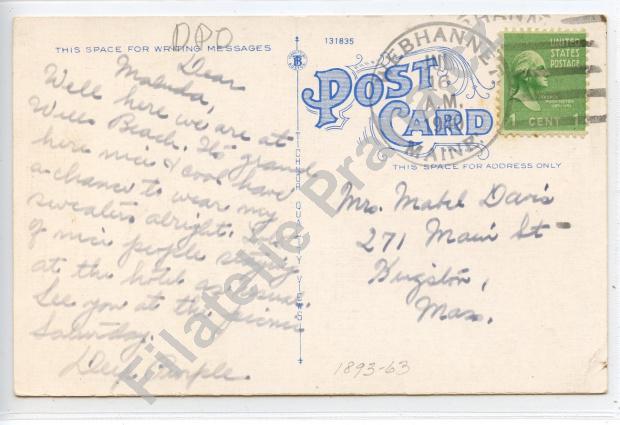 DPO
THIS SPACE FOR WRITING MESSAGES
Dear
Malinda,
Well here we are at
Wells Beach. It's grand
here nice & cool have
a chance to wear my
sweaters alright. Lots
of nice people staying
at the hotel as usual.
See you at the picnic
Saturday.
TICHNOR QUALITY VIEWS
131835
POST
CARD
WEBHANNET
16
A.M.
MAINE
UNITED
STATES
POSTAGE
1 CENT 1
THIS SPACE FOR ADDRESS ONLY
Mrs. Mabel Davis
271 Main St
Kingston,
Mass.
1893-63
Filatelic